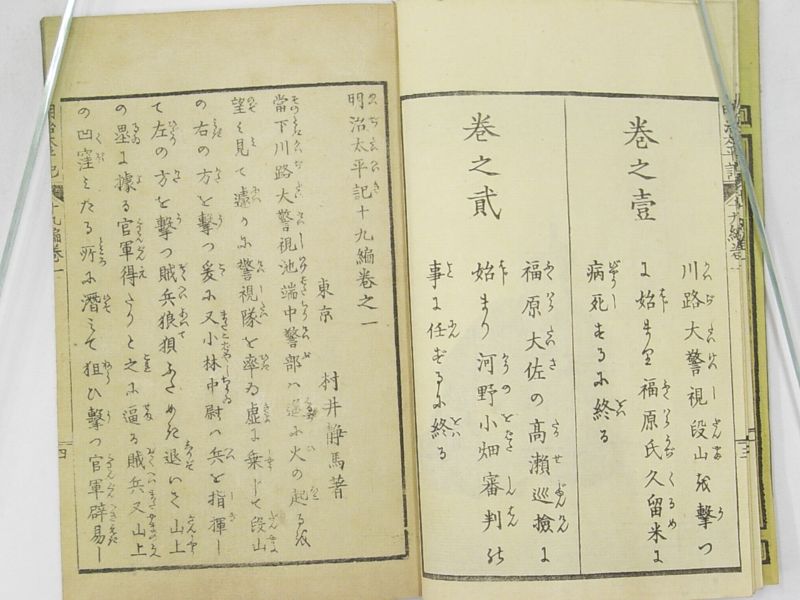 巻之壹
川路大警視段山を撃つ
に始まり福原氏久留米に
病死するに終る
巻之貳
福原大佐の高瀬巡撿に
始まり河野小畑審判の
事に任ずるに終る
明治太平記十九編巻之一
東京 村井静馬著
當下川路大警視池端中警部ハ遥に火の起るを
望み見て遽かに警視隊を率ゐ虚に乗じて段山
の右の方を撃つ爰に又小林中尉ハ兵を指揮し
て左の方を撃つ賊兵狼狽ふためき退いて山上
の塁に據る官軍得たりと之に逼る賊兵又山上
の凹窪みたる所に潜みて狙ひ撃つ官軍辟易し
明治太平記 十九編巻一
四
三